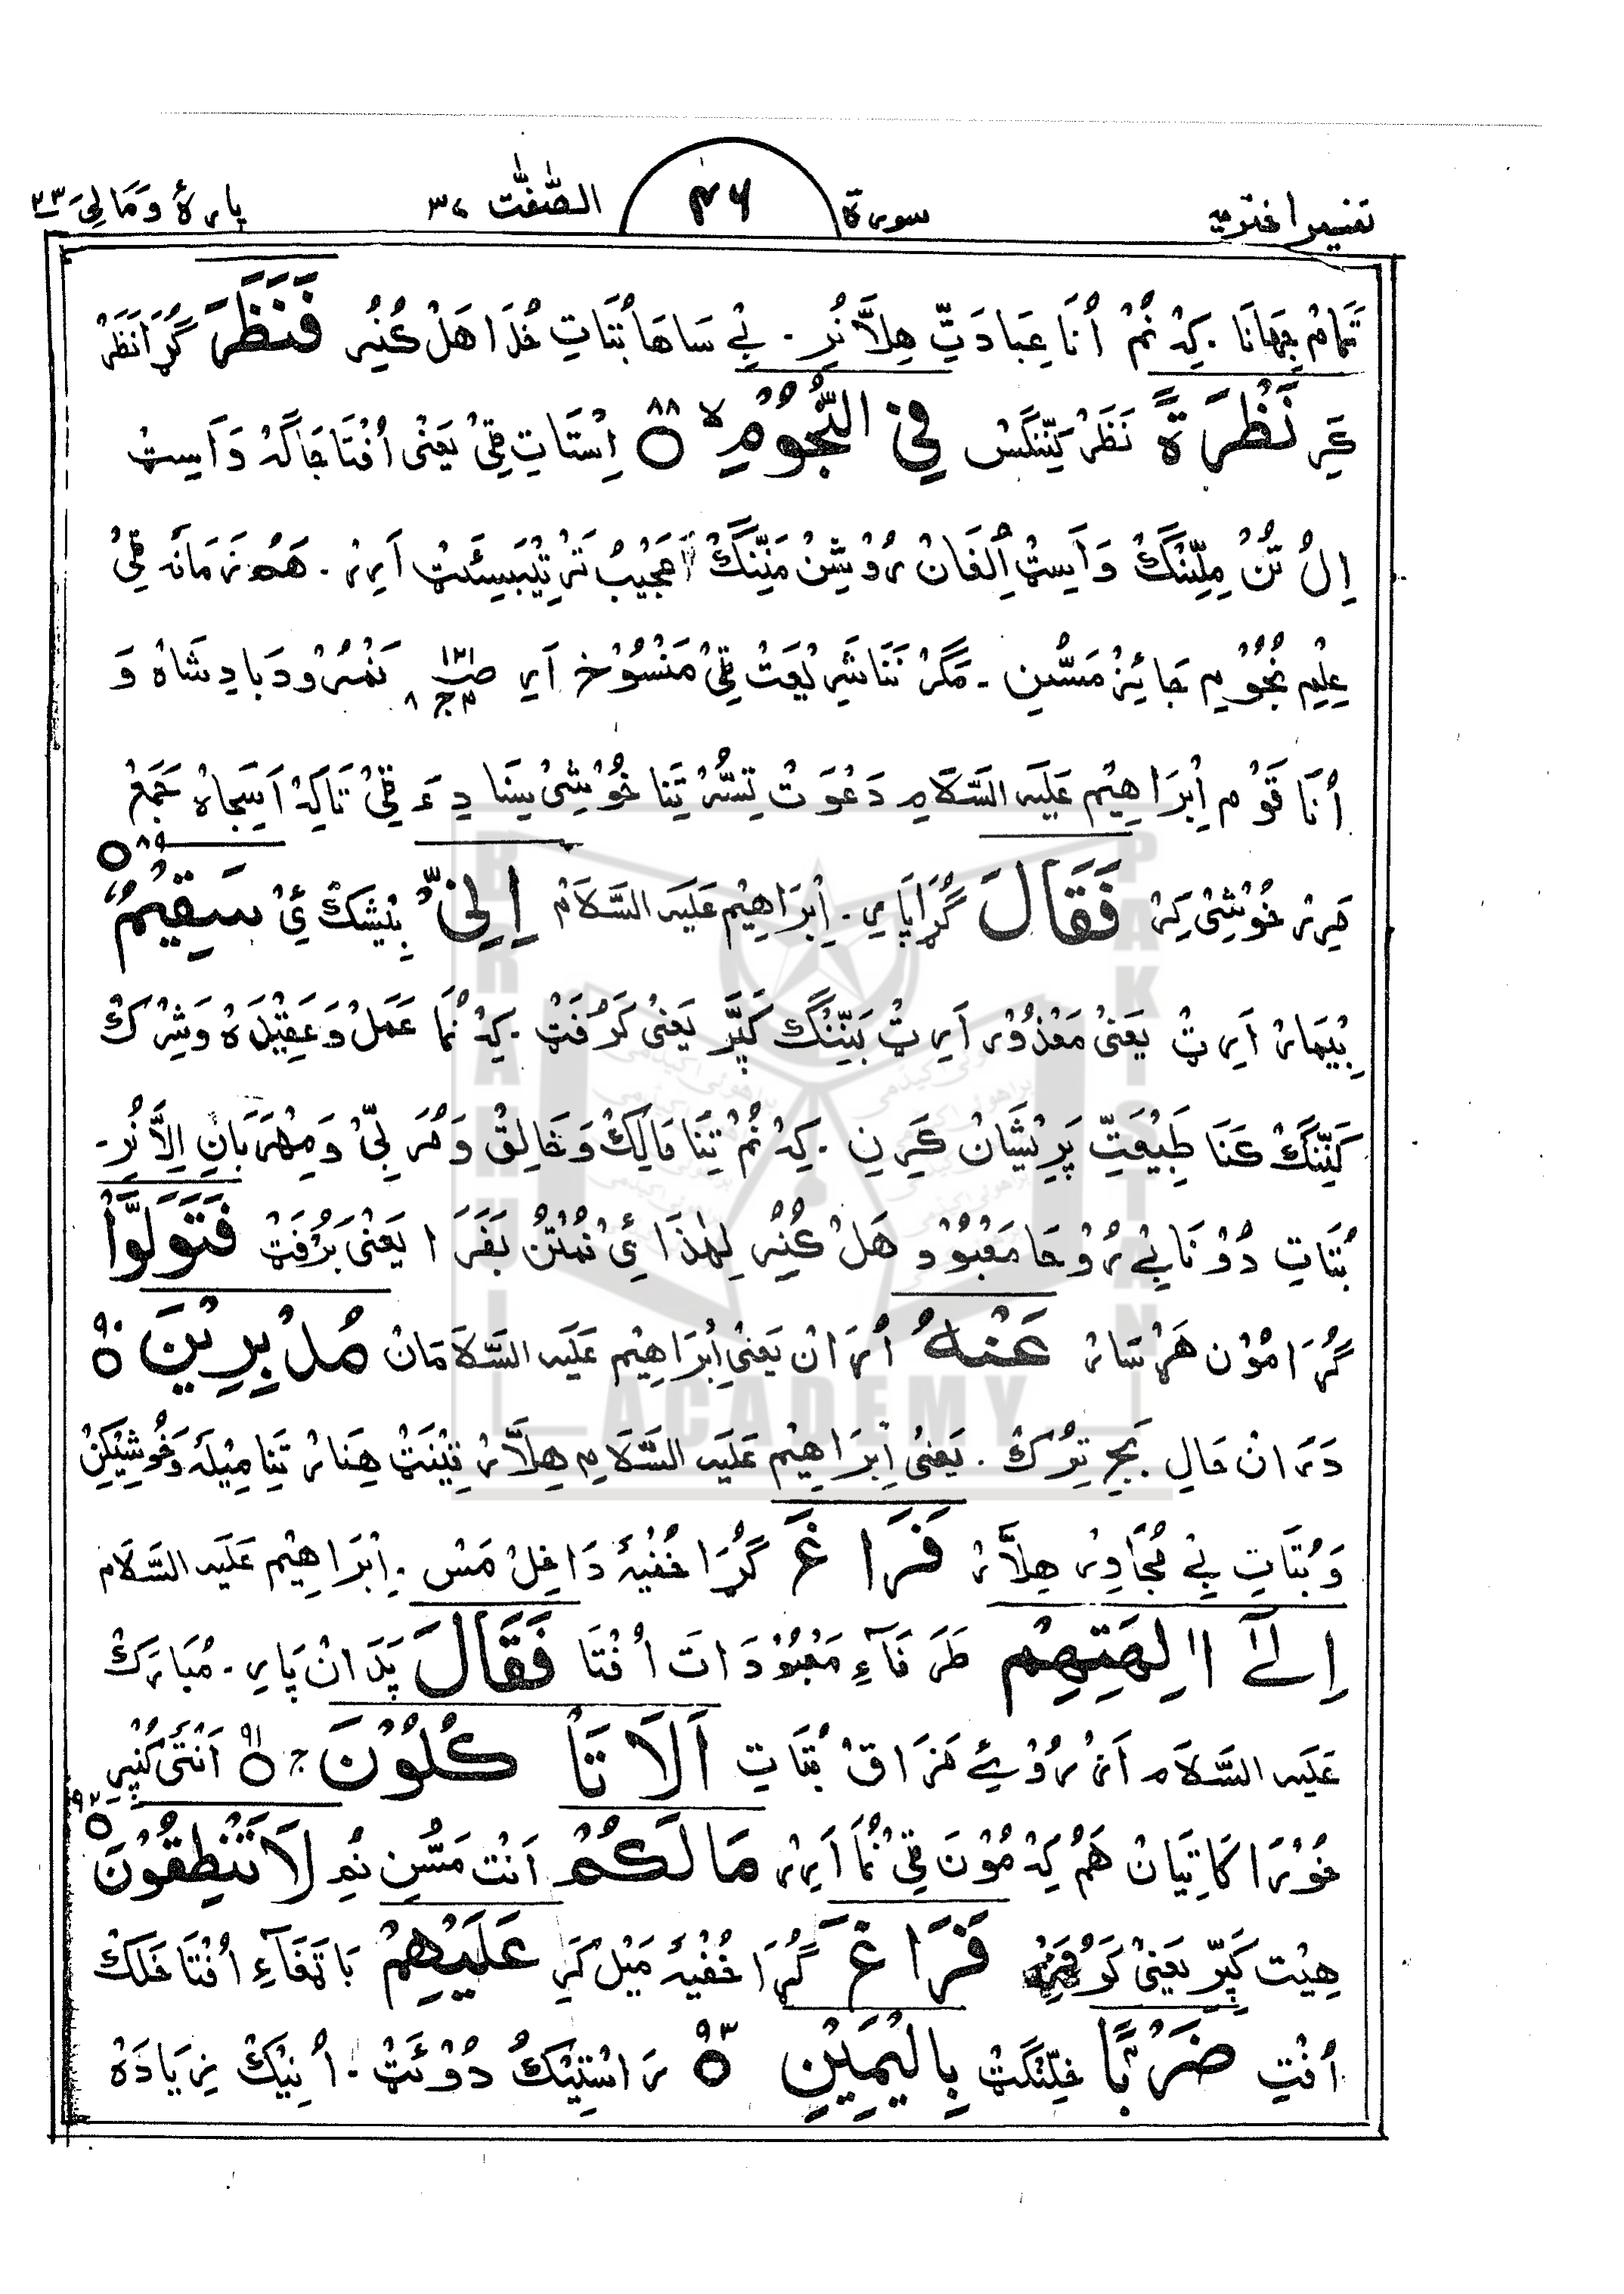 تفسیر اختریہ سورة ۴۶ الصّٰفّٰت ۳۷ پارهٔ وَمَالِیَ ۲۳
تَمَامْ جِهَانَا۔ کِہْ نُمْ اُنَا عِبَادَتِّ هِلَّانُرِ۔ بےْ سَاهَا بُتَاتِ خُدَا هَلْ کُنِرِ فَنَظَرَ گُڑَا نَظَرْ
کَرِ نَظْرَةً نَظَرْ کَنِّنگَسْ فِی النُّجُوْمِ ۸۸ اِسْتَاتِ قِیْ یَعْنِیْ اُفْتَا جَاگَہْ وَ اَسِٹْ
اِلُ تُنْ مِلِّنْگْ وَ اَسِٹْ اِلُفَانْ رُوْشَنْ مَنِّنگْ عَجِیْبُ تَرْتِیْبَسِئَٹْ اَرِرْ۔ هَمُو زَمَانَہ قِیْ
عِلْمِ نُجُوْمِ جَائِزْ مَسُّنِ۔ مَگَرْ نَنَا شَرِیْعَتْ قِیْ مَنْسُوْخ اَرِ نَمْرُود بَادِشَاهْ وَ
اُنَا قَوْم اِبْرَاهِیْم عَلَیہ السَّلَام دَعْوَتْ تِسُّرْ تَنَا خُوْشِیْ سِنَا دِءَ قِیْ تَاکِہْ اَسِجَاهْ جَمَعْ
مَرِرْ خُوْشِیْ کِرْ فَقَالَ گُڑَا پَارِ۔ اِبْرَاهِیْم عَلَیہ السَّلَامْ اِنِّیْ بِیْشَکْ ئِیْ سَقِیْمٌ ۸۹
بِیْمَارْ اَرِٹْ یَعْنِیْ مَعْذُوْر اَرِٹْ بَنِّنگْ کَپَّر یَعْنِیْ کَرُفَٹْ۔ کِہْ نُمَا عَمَلْ وَ عَقِیْدَہْ وَ شِرْکْ
کَنِّنگْ کَنَا طَبِیْعَتِّ پَرِیْشَانْ کَرِنِ۔ کِہْ نُمْ تِنَا مَالِکْ وَ خَالِقْ وَ مُرَبِّیْ وَ مِهْرَبَانِ اِلَّانُرِ۔
بُتَاتِ دُوْنَا بےْ رُوْحَا مَعْبُوْد هَلْ کُنِرِ لِهٰذَا ئِیْ نُمْتُنْ بَفَرَا یَعْنِیْ بَرُفَٹْ فَتَوَلَّوْا
گُڑَا مُوْن هَرْسَارْ عَنْهُ اُرَانْ یَعْنِیْ اِبْرَاهِیْم عَلَیہ السَّلَامَانْ مُدْبِرِیْنَ ۹۰
دَرَانْ حَالِ بَجِ تِرُکْ۔ یَعْنِیْ اِبْرَاهِیْم عَلَیہ السَّلَامِ هِلَّارْ تِیْنَتْ هِنَارْ تَنَا مِیْلَہ وَ خُوْشِیْکِنْ
وَ بُتَاتِ بےْ مُجَاوِرْ هِلَّارْ فَرَاغَ گُڑَا خُفْیَہْ دَاخِلْ مَسْ۔ اِبْرَاهِیْم عَلَیہ السَّلَام
اِلٰۤی اٰلِهَتِهِمْ طَرَفَاءِ مَعْبُوْدَاتَ اُفْتَا فَقَالَ پَدَانْ پَارِ۔ مُبَارَکْ
عَلَیہ السَّلَام اَزْ رُوْئےْ مَزَاقْ بُتَاتِ اَلَا تَاْکُلُوْنَ ۹۱ اَنْتَئِی کُنِّرِ
خُوْرَاکَاتِیَانْ هَمْ کِہْ مُوْنَ قِیْ نُمَا اَرِرْ مَا لَکُمْ اَنْت مَسُّنِ نُمِ لَا تَنْطِقُوْنَ ۹۲
هِیْت کَپِّرِ یَعْنِیْ فَرَاغَ گُڑَا خُفْیَہْ مَیْل کَرِ عَلَیْهِمْ بَاتِمْغَاءِ اُفْتَا خَلَکْ
اُفْتِ ضَرْبًۢا خَلِّنْگَٹْ بِالْیَمِیْنِ ۹۳ رَاسْتِیْکْ دُوْئَٹْ۔ اُنِیْکْ زِیَادَہْ
BRAHUI ACADEMY PAKISTAN